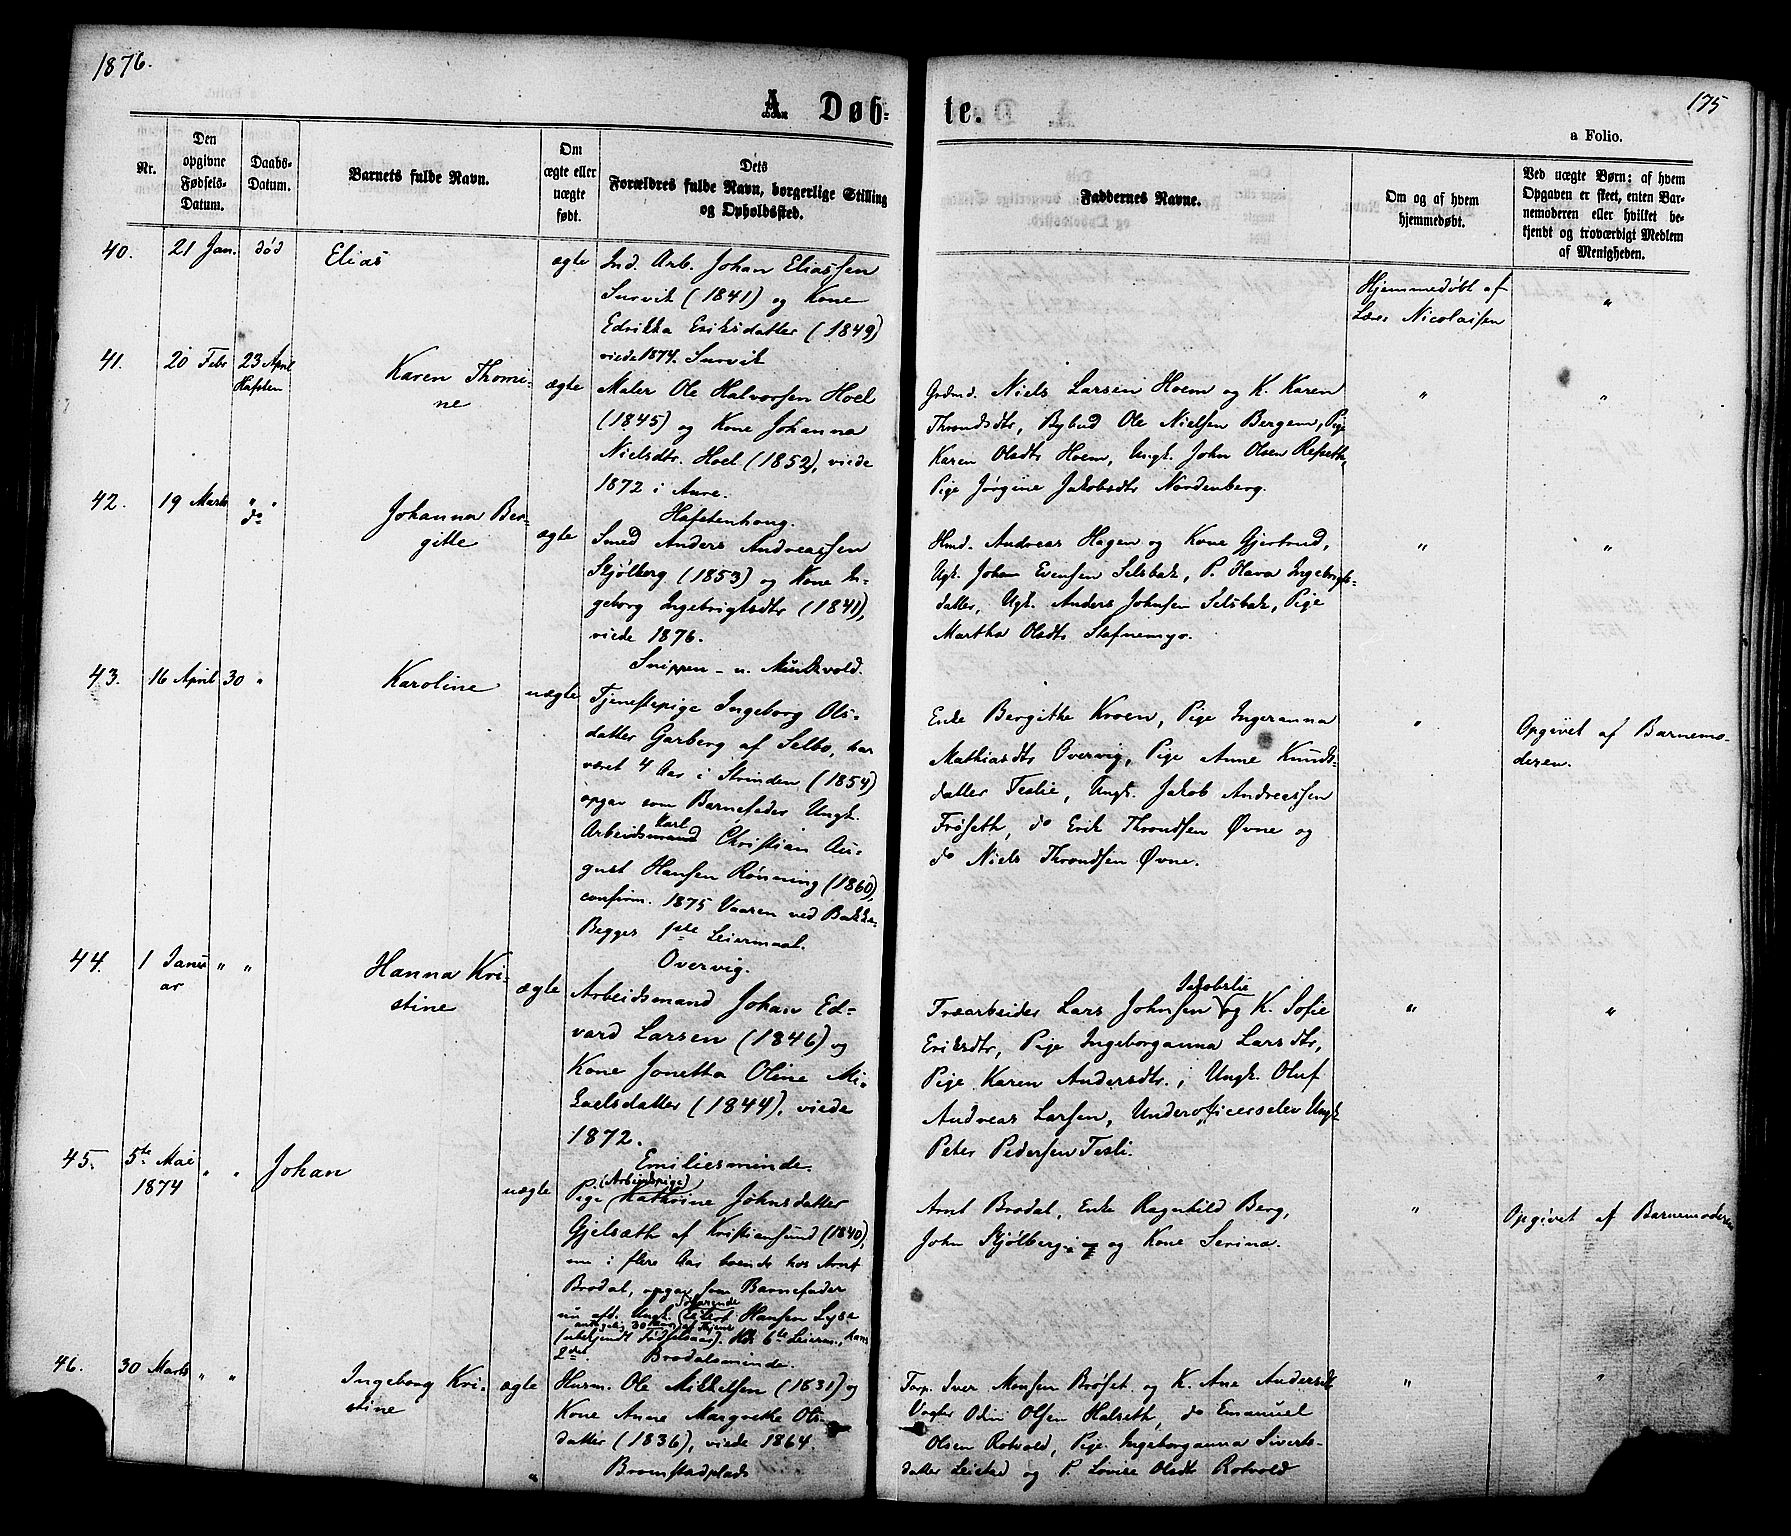 1876.
A. Døb-
te.
175
a Folio.
Nr.
Den
opgivne
Fødsels-
Datum.
Daabs-
Datum.
Barnets fulde Navn.
Om
ægte eller
uægte
født.
Dets
Forældres fulde Navn, borgerlige Stilling
og Opholdssted.
Faddernes Navne.
Om og af hvem
hjemmedøbt.
Ved uægte Børn: af hvem
Opgaven er skeet, enten Bar-
nemoderen eller hvilket be-
kjendt og troværdigt Medlem
af Menigheden.
40.
21 Jan.
død
Elias
ægte
Ind. Arb. Johan Eliassen
Survik (1841) og Kone
Edrikka Eriksdatter (1849)
viede 1874. Survik
Hjemmedøbt af
Lærer Nicolaisen
"
41.
20 Febr
23 April
Hafsten
Karen Thomi-
ne
ægte
Maler Ole Halvorsen Hoel
(1845) og Kone Johanna
Nielsdtr. Hoel (1852), viede
1872 i Aure.
Hafstenhaug.
Grdmd. Niels Larsen Hoem og K. Karen
Throndsdtr, Bybud Ole Nielsen Bergem, Pige
Karen Olsdtr Hoem, Ungk. John Olsen Refseth,
Pige Jørgine Jakobsdtr Nordenberg.
"
"
42.
19 Marts
" "
do
Johanna Ber-
gitte
ægte
Smed Anders Andreassen
Skjølberg (1853) og Kone In-
geborg Ingebrigtsdtr (1841),
viede 1876.
Snippen - u. Munkvold.
Hmd. Andreas Hagen og Kone Gjertrud,
Ungk. Johan Evensen Selsbak, P. Hava Ingebrigts-
datter, Ungk. Anders Johnsen Selsbak, Pige
Martha Olsdtr Stefnemyr.
"
"
43.
16 April
30 "
Karoline
uægte
Tjenestepige Ingeborg Ols-
datter Garberg af Selbo, har
været 4 Aar i Strinden (1854)
opgav som Barnefader Ungk.
Arbeidsmand Karl Christian Au-
gust Hansen Rönning (1860),
confirm. 1875 Vaaren ved Bakke.
Begges 1ste Leiermaal.
Overvig.
Enke Bergithe Kroen, Pige Ingeranna
Mathiasdtr Overvig, Pige Anne Knuds-
datter Teslie, Ungk. Jakob Andreassen
Fröseth, do Erik Throndsen Øvne og
do Niels Throndsen Øvne.
"
Opgivet af Barnemo-
deren.
44.
1 Janu-
ar
" "
Hanna Kri-
stine
ægte
Arbeidsmand Johan Ed-
vard Larsen (1846) og
Kone Jonetta Oline Mi-
kaelsdatter (1844), viede
1872.
Emiliesminde.
Træarbeider Lars Johnsen Jakobslie og K. Sofie
Eriksdtr, Pige Ingeborganna Larsdtr,
Pige Karen Andersdtr., Ungk. Oluf
Andreas Larsen, Underofficerselev Ungk.
Peter Pedersen Tesli.
"
"
45.
5te Mai
1874
" "
Johan
uægte
Pige (Arbeidspige) Kathrine Johnsdatter
Gjelsæth af Kristiansund (1840),
nu i flere Aar boende hos Arnt
Brodal, opgav som Barnefader
nu afd. Ungk. Söfarende Edvert Hansen Lysø
antagelig 30 Aar af Hjem
(ubekjendt Fødselsaar). Hds 6te Leierm., hans
2det.
Brodalsminde.
Arnt Brodal, Enke Ragnhild Berg,
John Skjølberg og Kone Serina.
"
Opgivet af Barnemoderen
46.
30 Marts
" "
Ingeborg Kri-
stine
ægte
Husm. Ole Mikkelsen (1831) og
Kone Anne Margrethe Ols-
datter (1836), viede 1864.
Bromstadplads
Torp. Iver Monsen Brøset og K. Ane Andersdtr
Vogter Odin Olsen Halseth, do Emanuel
Olsen Rotvold, Pige Ingeborganna Siverts-
datter Leistad og P. Lovise Olsdtr Rotvold
"
"